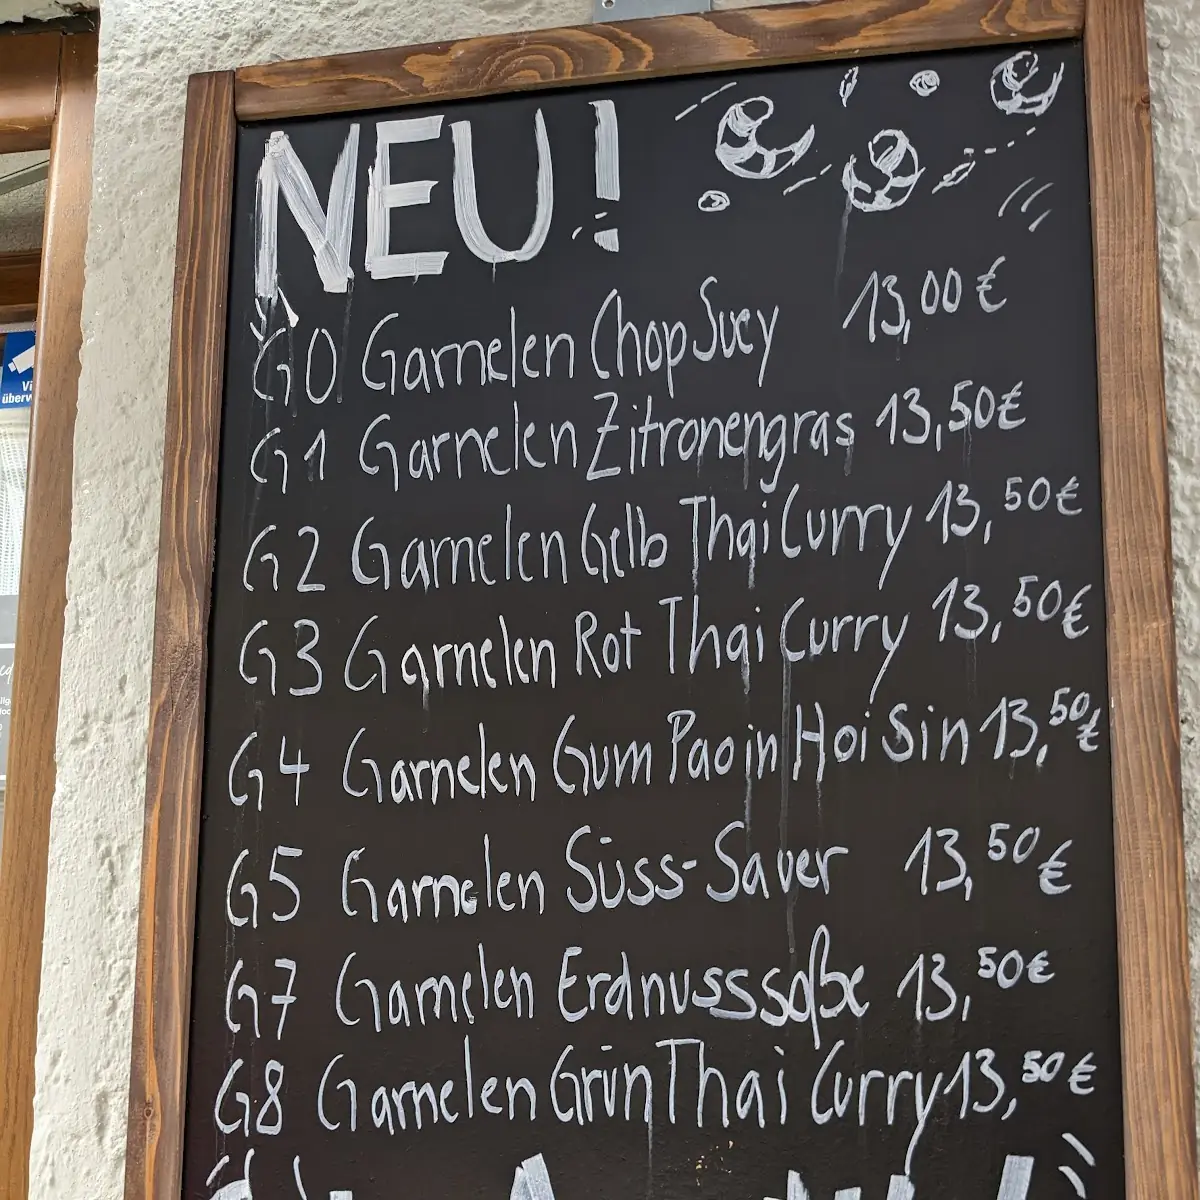 NEU!
G0 Garnelen Chop Suey 13,00 €
G1 Garnelen Zitronengras 13,50 €
G2 Garnelen Gelb Thai Curry 13,50 €
G3 Garnelen Rot Thai Curry 13,50 €
G4 Garnelen Gum Pao in Hoi Sin 13,50 €
G5 Garnelen Süss-Sauer 13,50 €
G7 Garnelen Erdnusssoße 13,50 €
G8 Garnelen Grün Thai Curry 13,50 €